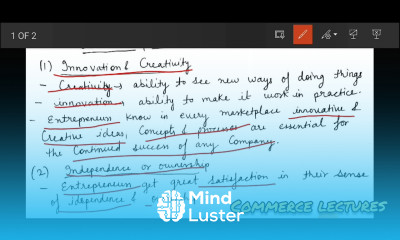 1 OF 2
(1) Innovation & Creativity
- Creativity → ability to see new ways of doing things
- innovation → ability to make it work in practice.
- Entrepreneurs know in every marketplace innovative &
Creative ideas, Concepts & processes are essential for
the Continued success of any Company.
(2) Independence or ownership
- Entrepreneurs get great satisfaction in their sense
of independence &
Mind
Luster
COMMERCE LECTURES